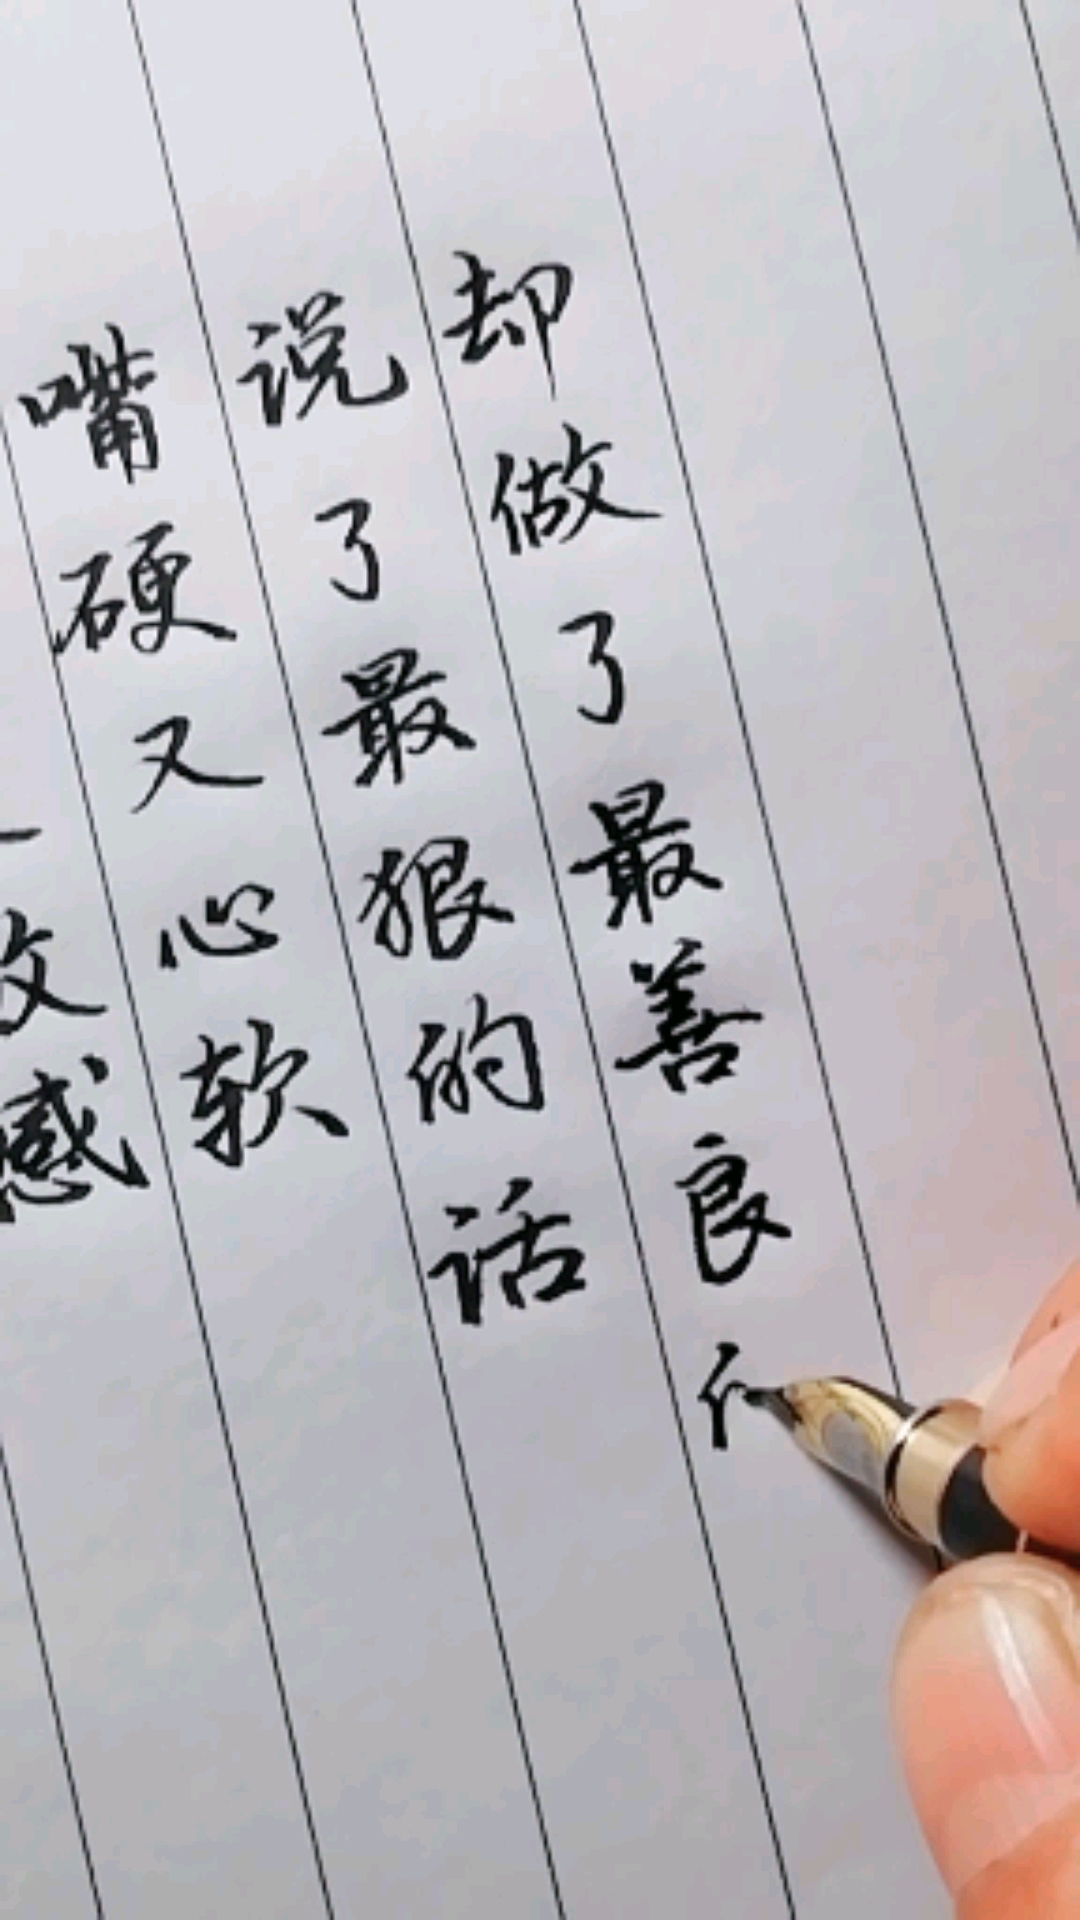 敏感
嘴硬又心软
说了最狠的话
却做了最善良